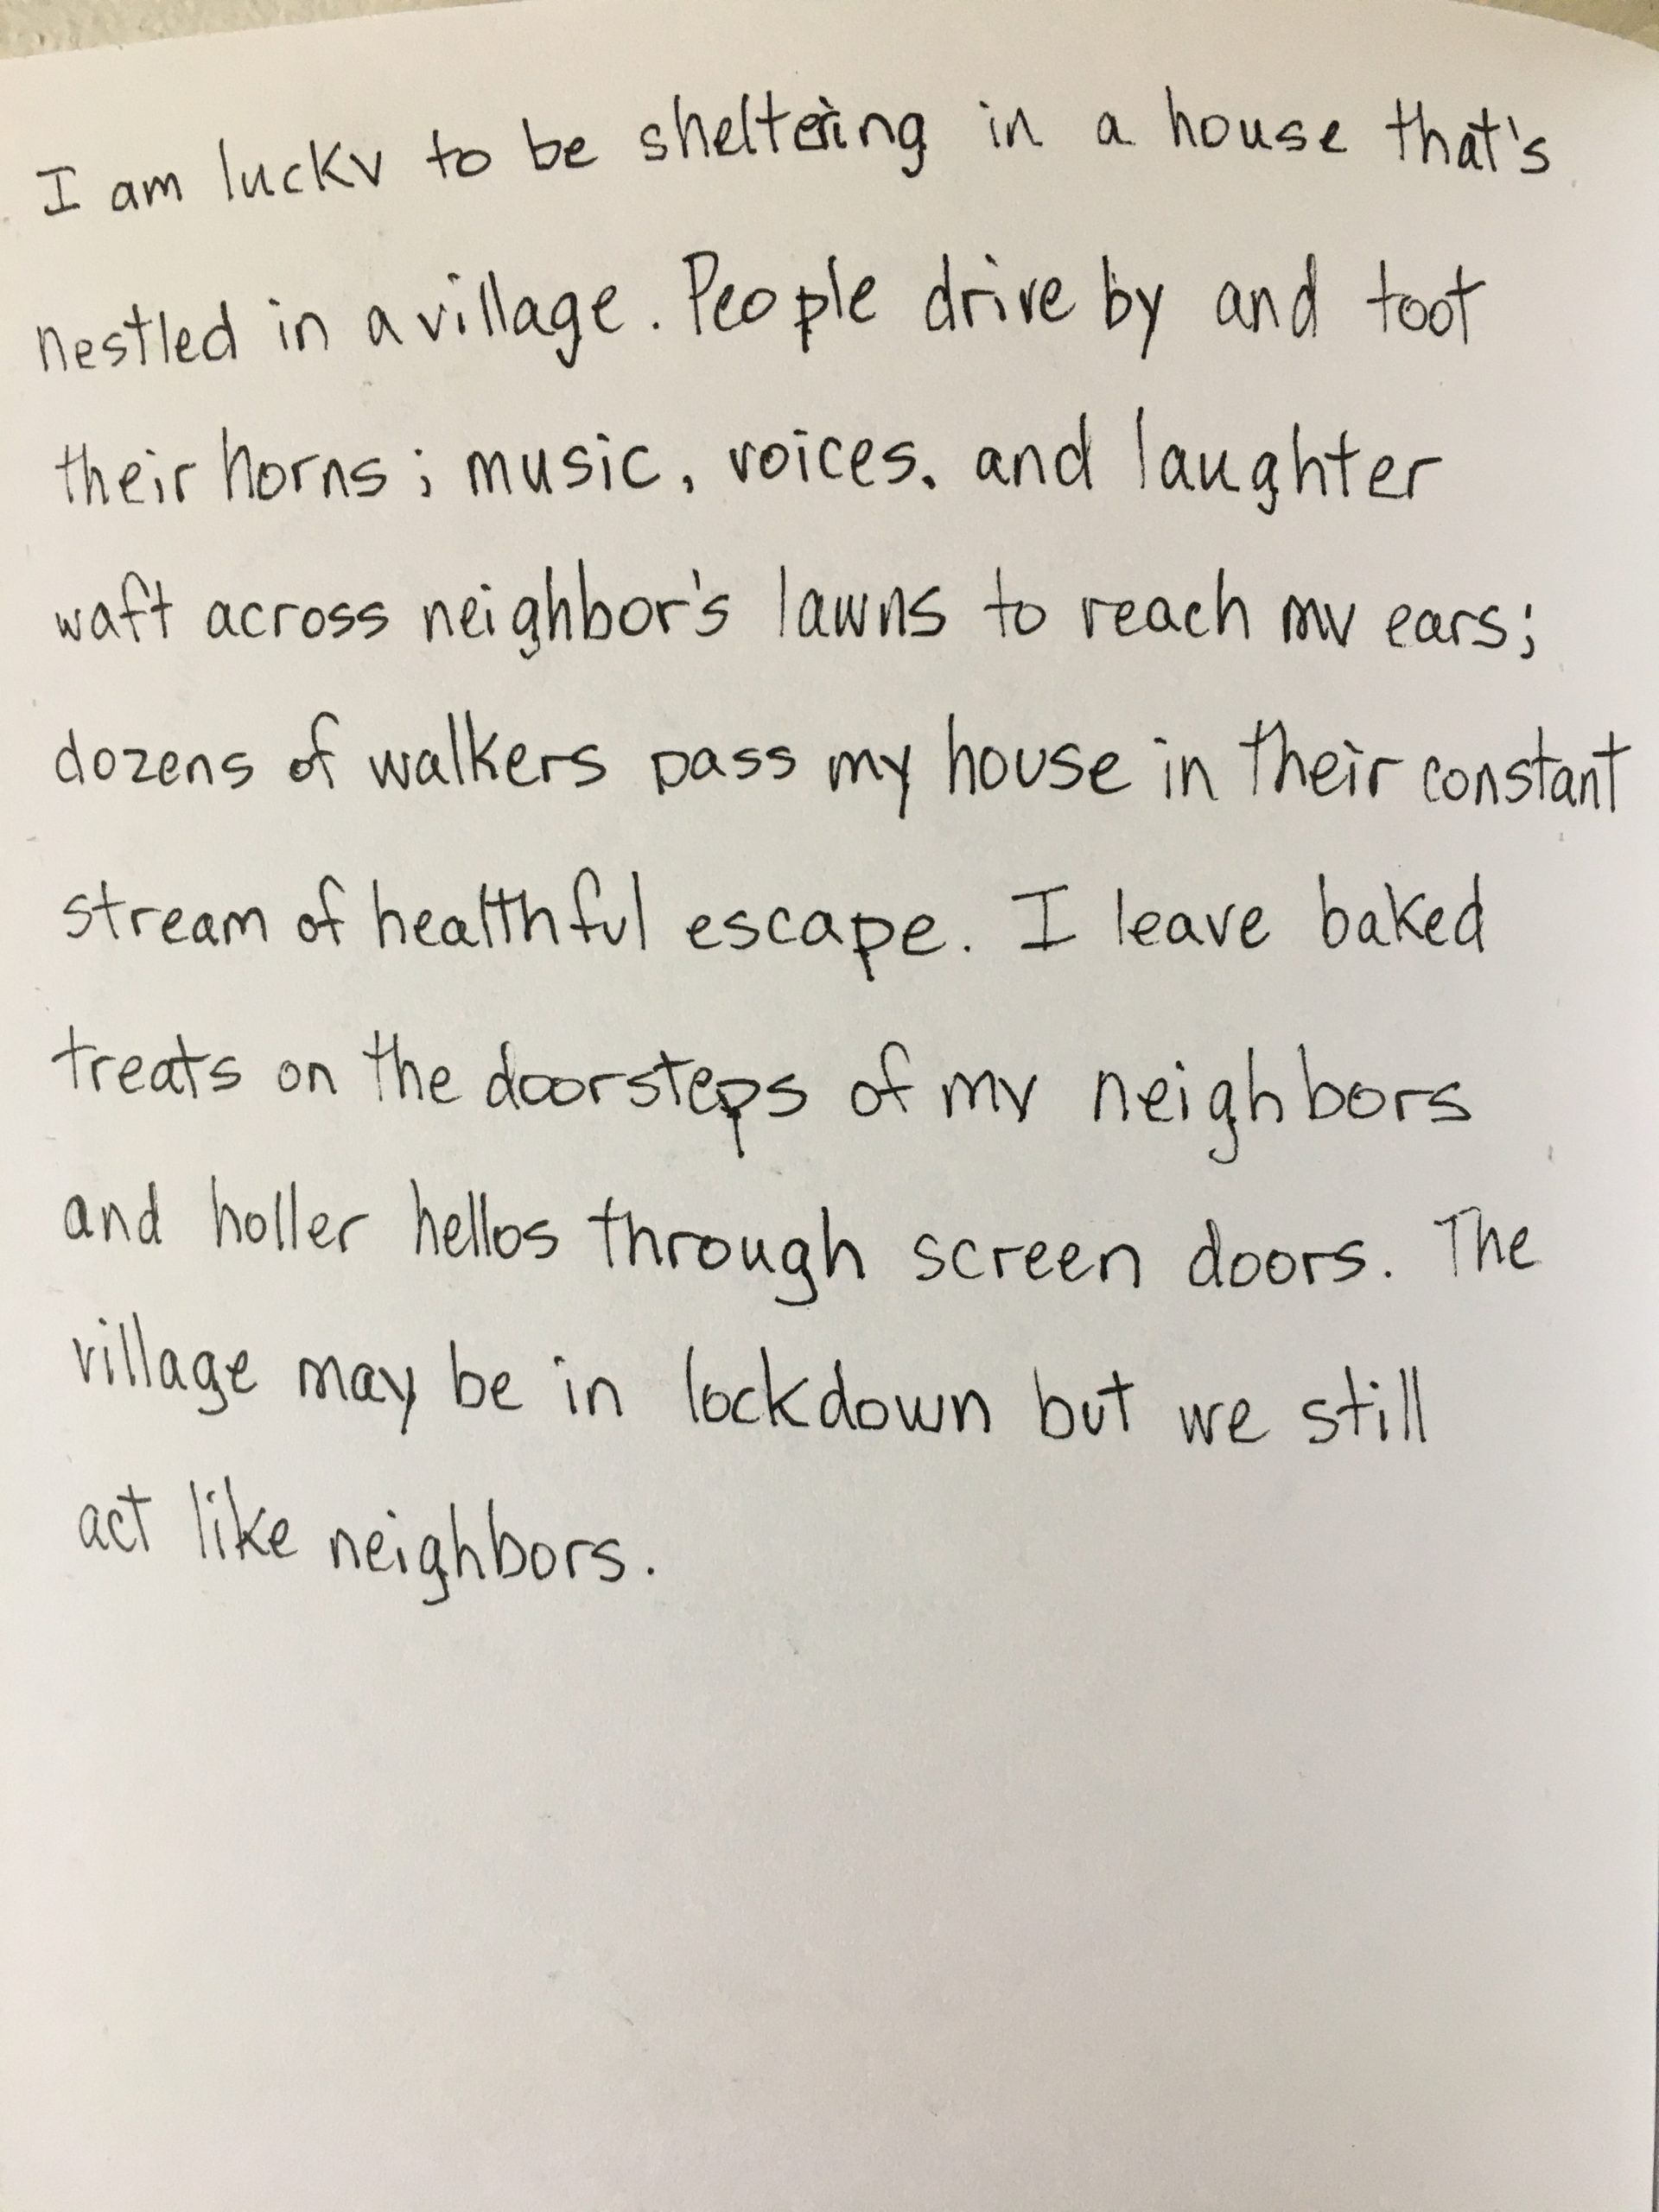 I am lucky to be sheltering in a house that's
nestled in a village. People drive by and toot
their horns; music, voices, and laughter
waft across neighbor's lawns to reach my ears;
dozens of walkers pass my house in their constant
stream of healthful escape. I leave baked
treats on the doorsteps of my neighbors
and holler hellos through screen doors. The
village may be in lockdown but we still
act like neighbors.